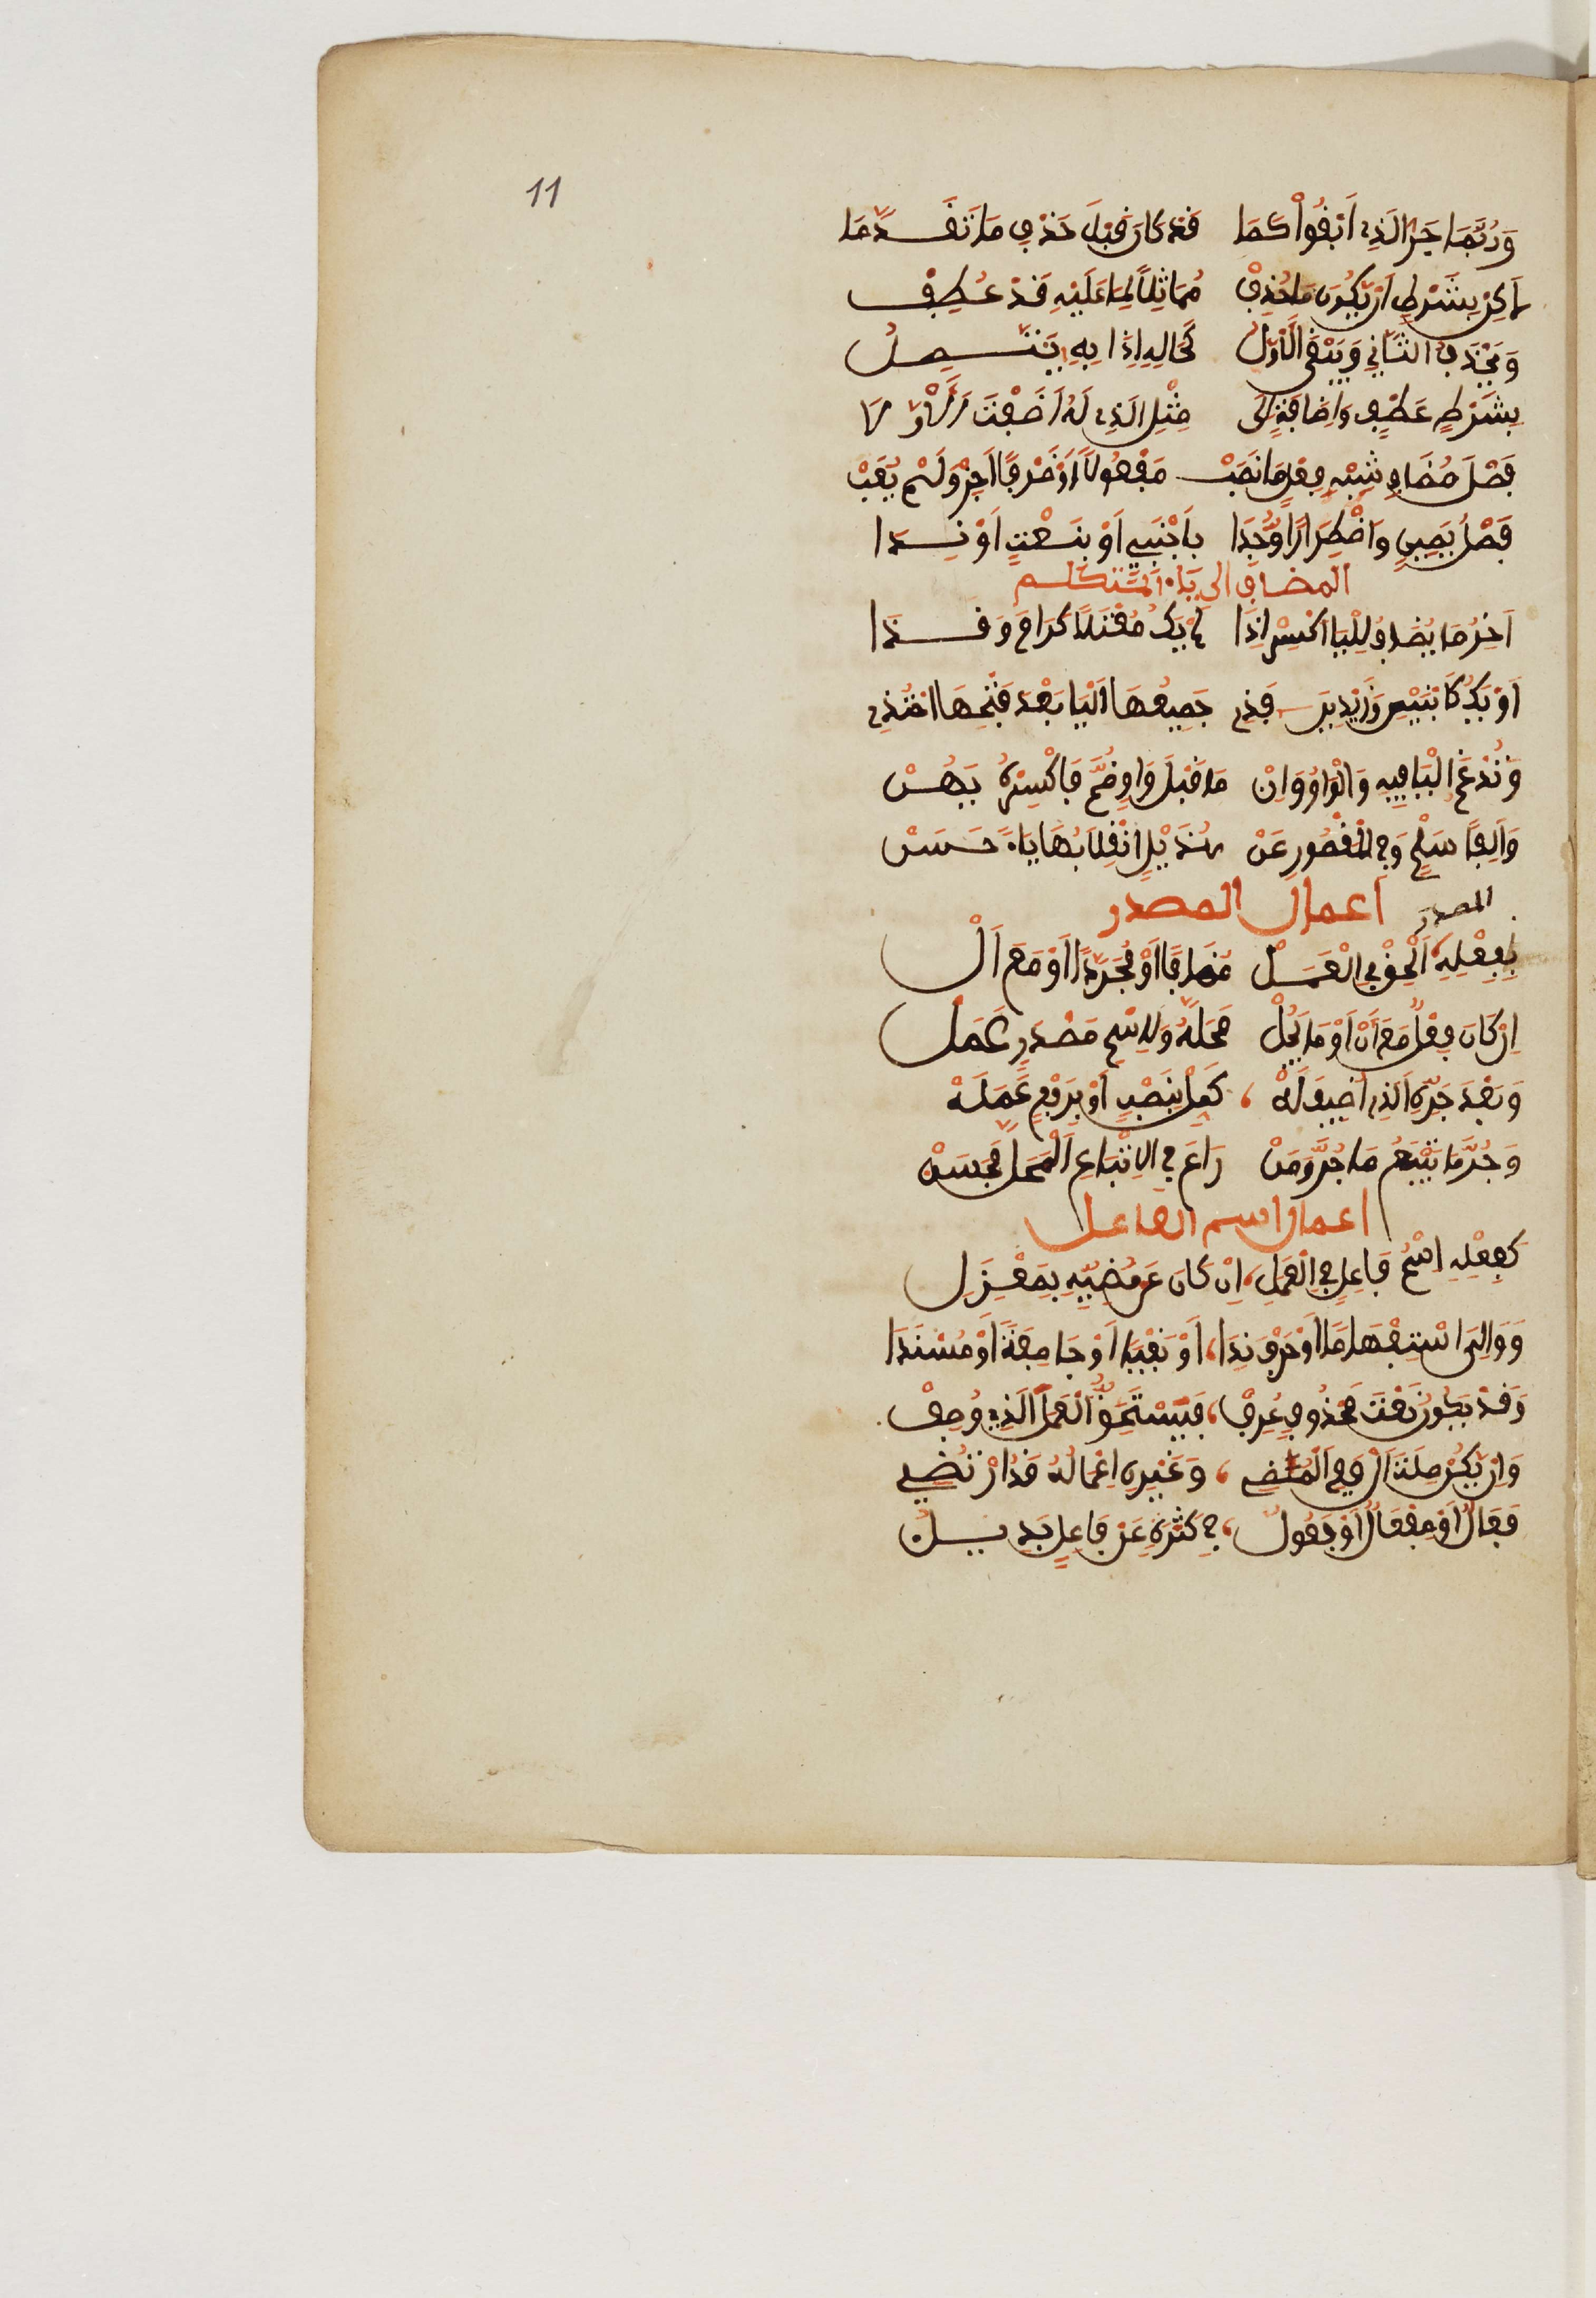 11
وَرُبَّمَا جَرُّوا الَّذِي أَبْقَوْا كَمَا قَدْ كَانَ قَبْلَ حَذْفِ مَا تَقَدَّمَا
لَكِنْ بِشَرْطِ أَنْ يَكُونَ مَا حُذِفْ مُمَاثِلًا لِمَا عَلَيْهِ قَدْ عُطِفْ
وَيُحْذَفُ الثَّانِي وَيَبْقَى الْأَوَّلُ كَحَالِهِ إِذَا بِهِ يَتَّصِلُ
بِشَرْطِ عَطْفٍ وَإِضَافَةٍ إِلَى مِثْلِ الَّذِي لَهُ أَضَفْتَ الْأَوَّلَا
فَصْلَ مُضَافٍ شِبْهِ فِعْلٍ مَا نَصَبْ مَفْعُولًا أَوْ ظَرْفًا أَجِزْ وَلَمْ يُعَبْ
فَصْلُ يَمِينٍ وَاضْطِرَارًا وُجِدَا بِأَجْنَبِيٍّ أَوْ بِنَعْتٍ أَوْ نِدَا
المضاف إلى ياء المتكلم
آخِرَ مَا يُضَافُ لِلْيَا اكْسِرْ إِذَا لَمْ يَكُ مُعْتَلًّا كَرَامٍ وَقَذَا
أَوْ يَكُ كَابْنَيْنِ وَزَيْدِينَ فَذِي جَمِيعُهَا الْيَا بَعْدُ فَتْحُهَا احْتُذِي
وَتُدْغَمُ الْيَا فِيهِ وَالْوَاوُ وَإِنْ مَا قَبْلَ وَاوٍ ضُمَّ فَاكْسِرْهُ يَهُنْ
وَأَلِفًا سَلِّمْ وَفِي الْمَقْصُورِ عَنْ هُذَيْلٍ انْقِلَابُهَا يَاءً حَسَنْ
اعمال المصدر
المصدر
بِفِعْلِهِ الْمَصْدَرَ أَلْحِقْ فِي الْعَمَلْ مُضَافًا أَوْ مُجَرَّدًا أَوْ مَعَ أَلْ
إِنْ كَانَ فِعْلٌ مَعَ أَنْ أَوْ مَا يَحُلْ مَحَلَّهُ وَلِاسْمِ مَصْدَرٍ عَمَلْ
وَبَعْدَ جَرِّهِ الَّذِي أُضِيفَ لَهْ كَمِّلْ بِنَصْبٍ أَوْ بِرَفْعٍ عَمَلَهْ
وَجُرَّ مَا يَتْبَعُ مَا جُرَّ وَمَنْ رَاعَى فِي الِاتْبَاعِ الْمَحَلَّ فَحَسَنْ
اعمال اسم الفاعل
كَفِعْلِهِ اسْمُ فَاعِلٍ فِي الْعَمَلِ إِنْ كَانَ عَنْ مُضِيِّهِ بِمَعْزِلِ
وَوَلِيَ اسْتِفْهَامًا أَوْ حَرْفَ نِدَا أَوْ نَفْيًا أَوْ جَا صِفَةً أَوْ مُسْنَدَا
وَقَدْ يَكُونُ نَعْتَ مَحْذُوفٍ عُرِفْ فَيَسْتَحِقُّ الْعَمَلَ الَّذِي وُصِفْ
وَإِنْ يَكُنْ صِلَةَ أَلْ فَفِي الْمُضِي وَغَيْرِهِ إِعْمَالُهُ قَدِ ارْتُضِي
فَعَّالٌ أَوْ مِفْعَالٌ أَوْ فَعُولُ فِي كَثْرَةٍ عَنْ فَاعِلٍ بَدِيلُ